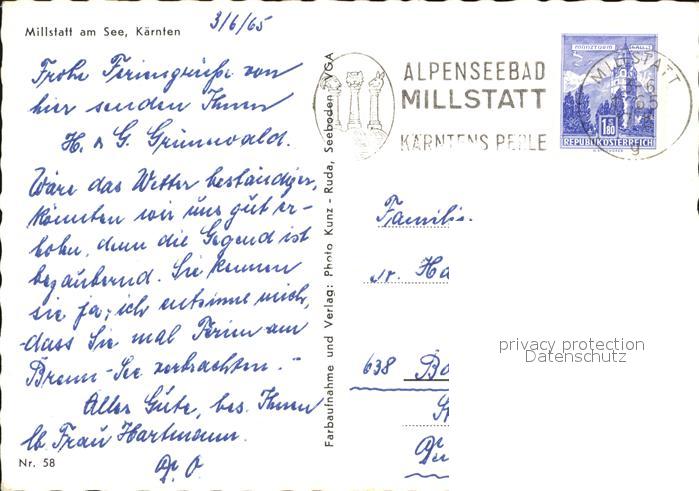 Millstatt am See, Kärnten
3/6/65
Frohe Feriengrüße von
hier senden Ihnen
H. & G. Grünwald.
Wäre das Wetter beständiger,
könnten wir uns gut er-
holen, denn die Gegend ist
bezaubernd. Sie kennen
sie ja; ich entsinne mich,
dass Sie mal Ferien am
Brenn-See verbrachten.-
Alles Gute, bes. Ihnen
lb. Frau Hartmann.
Nr. 58
Farbaufnahme und Verlag: Photo Kunz - Ruda, Seeboden TVGA
ALPENSEEBAD
MILLSTATT
KÄRNTENS PERLE
MÜNZTURM HALL I.T.
1.80
REPUBLIK ÖSTERREICH
MILLSTATT
6
65
g
Familie
Dr. Ha
638 Ba
privacy protection
Datenschutz